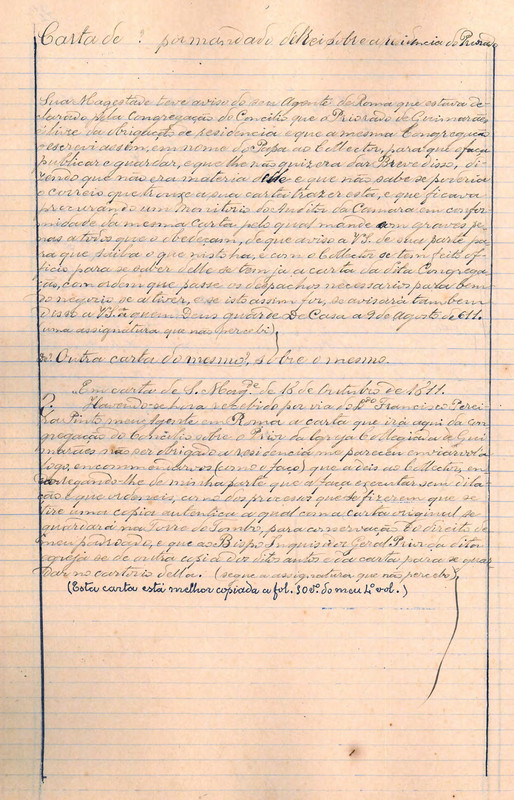 Carta de : por mandado de Rei sobre a residencia do Priorado
Sua Magestade teve aviso do seu Agente de Roma que estava de-
clarado pela Congregação do Concilio que o Priorado de Guimarães
é livre da obrigação de residencia e que a mesma Congregação
escrevi assim, em nome do Papa ao Collector, para que o faça
publicar e guardar, e que lhe não quizera dar Breve disso, di-
zendo que não era materia delle e que não sabe se poderia
o correio que trouxe a sua carta trazer esta, e que ficava
procurando um Monitorio do Auditor da Camara em confor-
midade da mesma carta pelo qual mande com graves pe-
nas a todos que o obedeçam, de que aviso a V.S. de sua parte pa-
ra que saiba o que nisto ha, e com o Collector se tem feito of-
ficio para se saber delle se tem já a carta da dita Congrega-
ção, com ordem que passe os despachos necessarios para bem
do negocio se a tiver, e se isto assim for, se avisará tambem
disso a V.S. a quem Deus guarde De Casa a 9 de Agosto de 611.
uma assignatura que não percebi)
Outra carta do mesmo?, sobre o mesmo.
Em carta de S. Mag.e de 18 de Outubro de 1611.
Havendo-se hora recebido por via do D.or Francisco Perei-
ra Pinto meu Agente em Roma a carta que irá aqui da Con-
gregação do Concilio sobre o Prior da Igreja Collegiada de Gui-
marães não ser obrigado a residencia me pareceu enviar-vol-a
logo, encommendar-vos (como o faço) que a deis ao Collector, en-
carregando-lhe de minha parte que a faça executar sem dila-
ção e que ordeneis, como dos processos que se fizerem que se
tire uma copia autentica a qual com a carta original se
guardará na Torre do Tombo, para conservação do direito de
meu padroado, e que ao Bispo Inquisidor Geral Prior da dita
egreja se dê outra copia dos ditos autos e da carta para se guar-
dar no cartorio della. (segue a assignatura que não percebo)
(Esta carta está melhor copiada a fol. 30 vº. do meu 4º vol.)